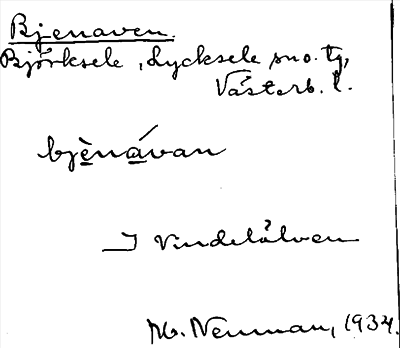 Bjenaven.
Björksele, Lycksele sno. tg,
Västerb. l.
bjènávan
I Vindelälven
M. Neuman, 1934.